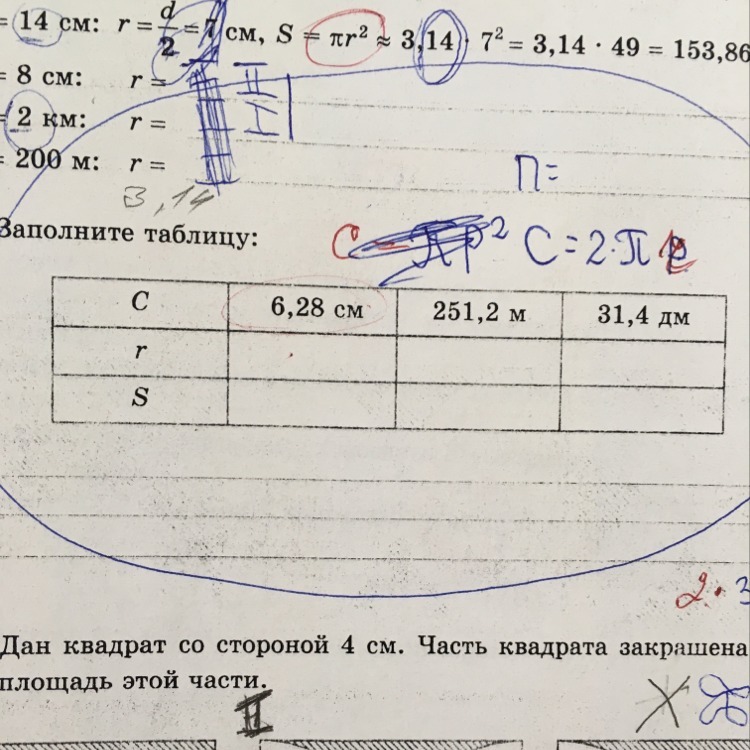 = 14 см: r = d/2 = 7 см, S = πr² ≈ 3,14 · 7² = 3,14 · 49 = 153,86
= 8 см: r =
= 2 км: r =
= 200 м: r =
П=
3,14
Заполните таблицу:
C = πр² C=2·π r
C 6,28 см 251,2 м 31,4 дм
r
S
2 · 3
Дан квадрат со стороной 4 см. Часть квадрата закрашена
площадь этой части.
II